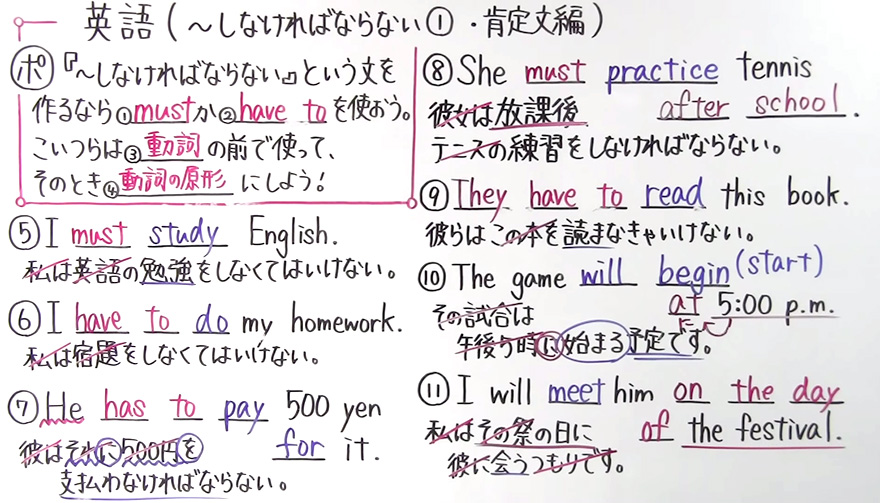 英語(～しなければならない①・肯定文編)
ポ『～しなければならない』という文を
作るなら①mustか②have toを使おう。
こいつらは③動詞の前で使って、
そのとき④動詞の原形にしよう!
⑤I must study English.
私は英語の勉強をしなくてはいけない。
⑥I have to do my homework.
私は宿題をしなくてはいけない。
⑦He has to pay 500 yen
for it.
彼はそれに500円を
支払わなければならない。
⑧She must practice tennis
after school.
彼女は放課後
テニスの練習をしなければならない。
⑨They have to read this book.
彼らはこの本を読まなきゃいけない。
⑩The game will begin(start)
at 5:00 p.m.
その試合は
午後5時に始まる予定です。
⑪I will meet him on the day
of the festival.
私はその祭の日に
彼に会うつもりです。